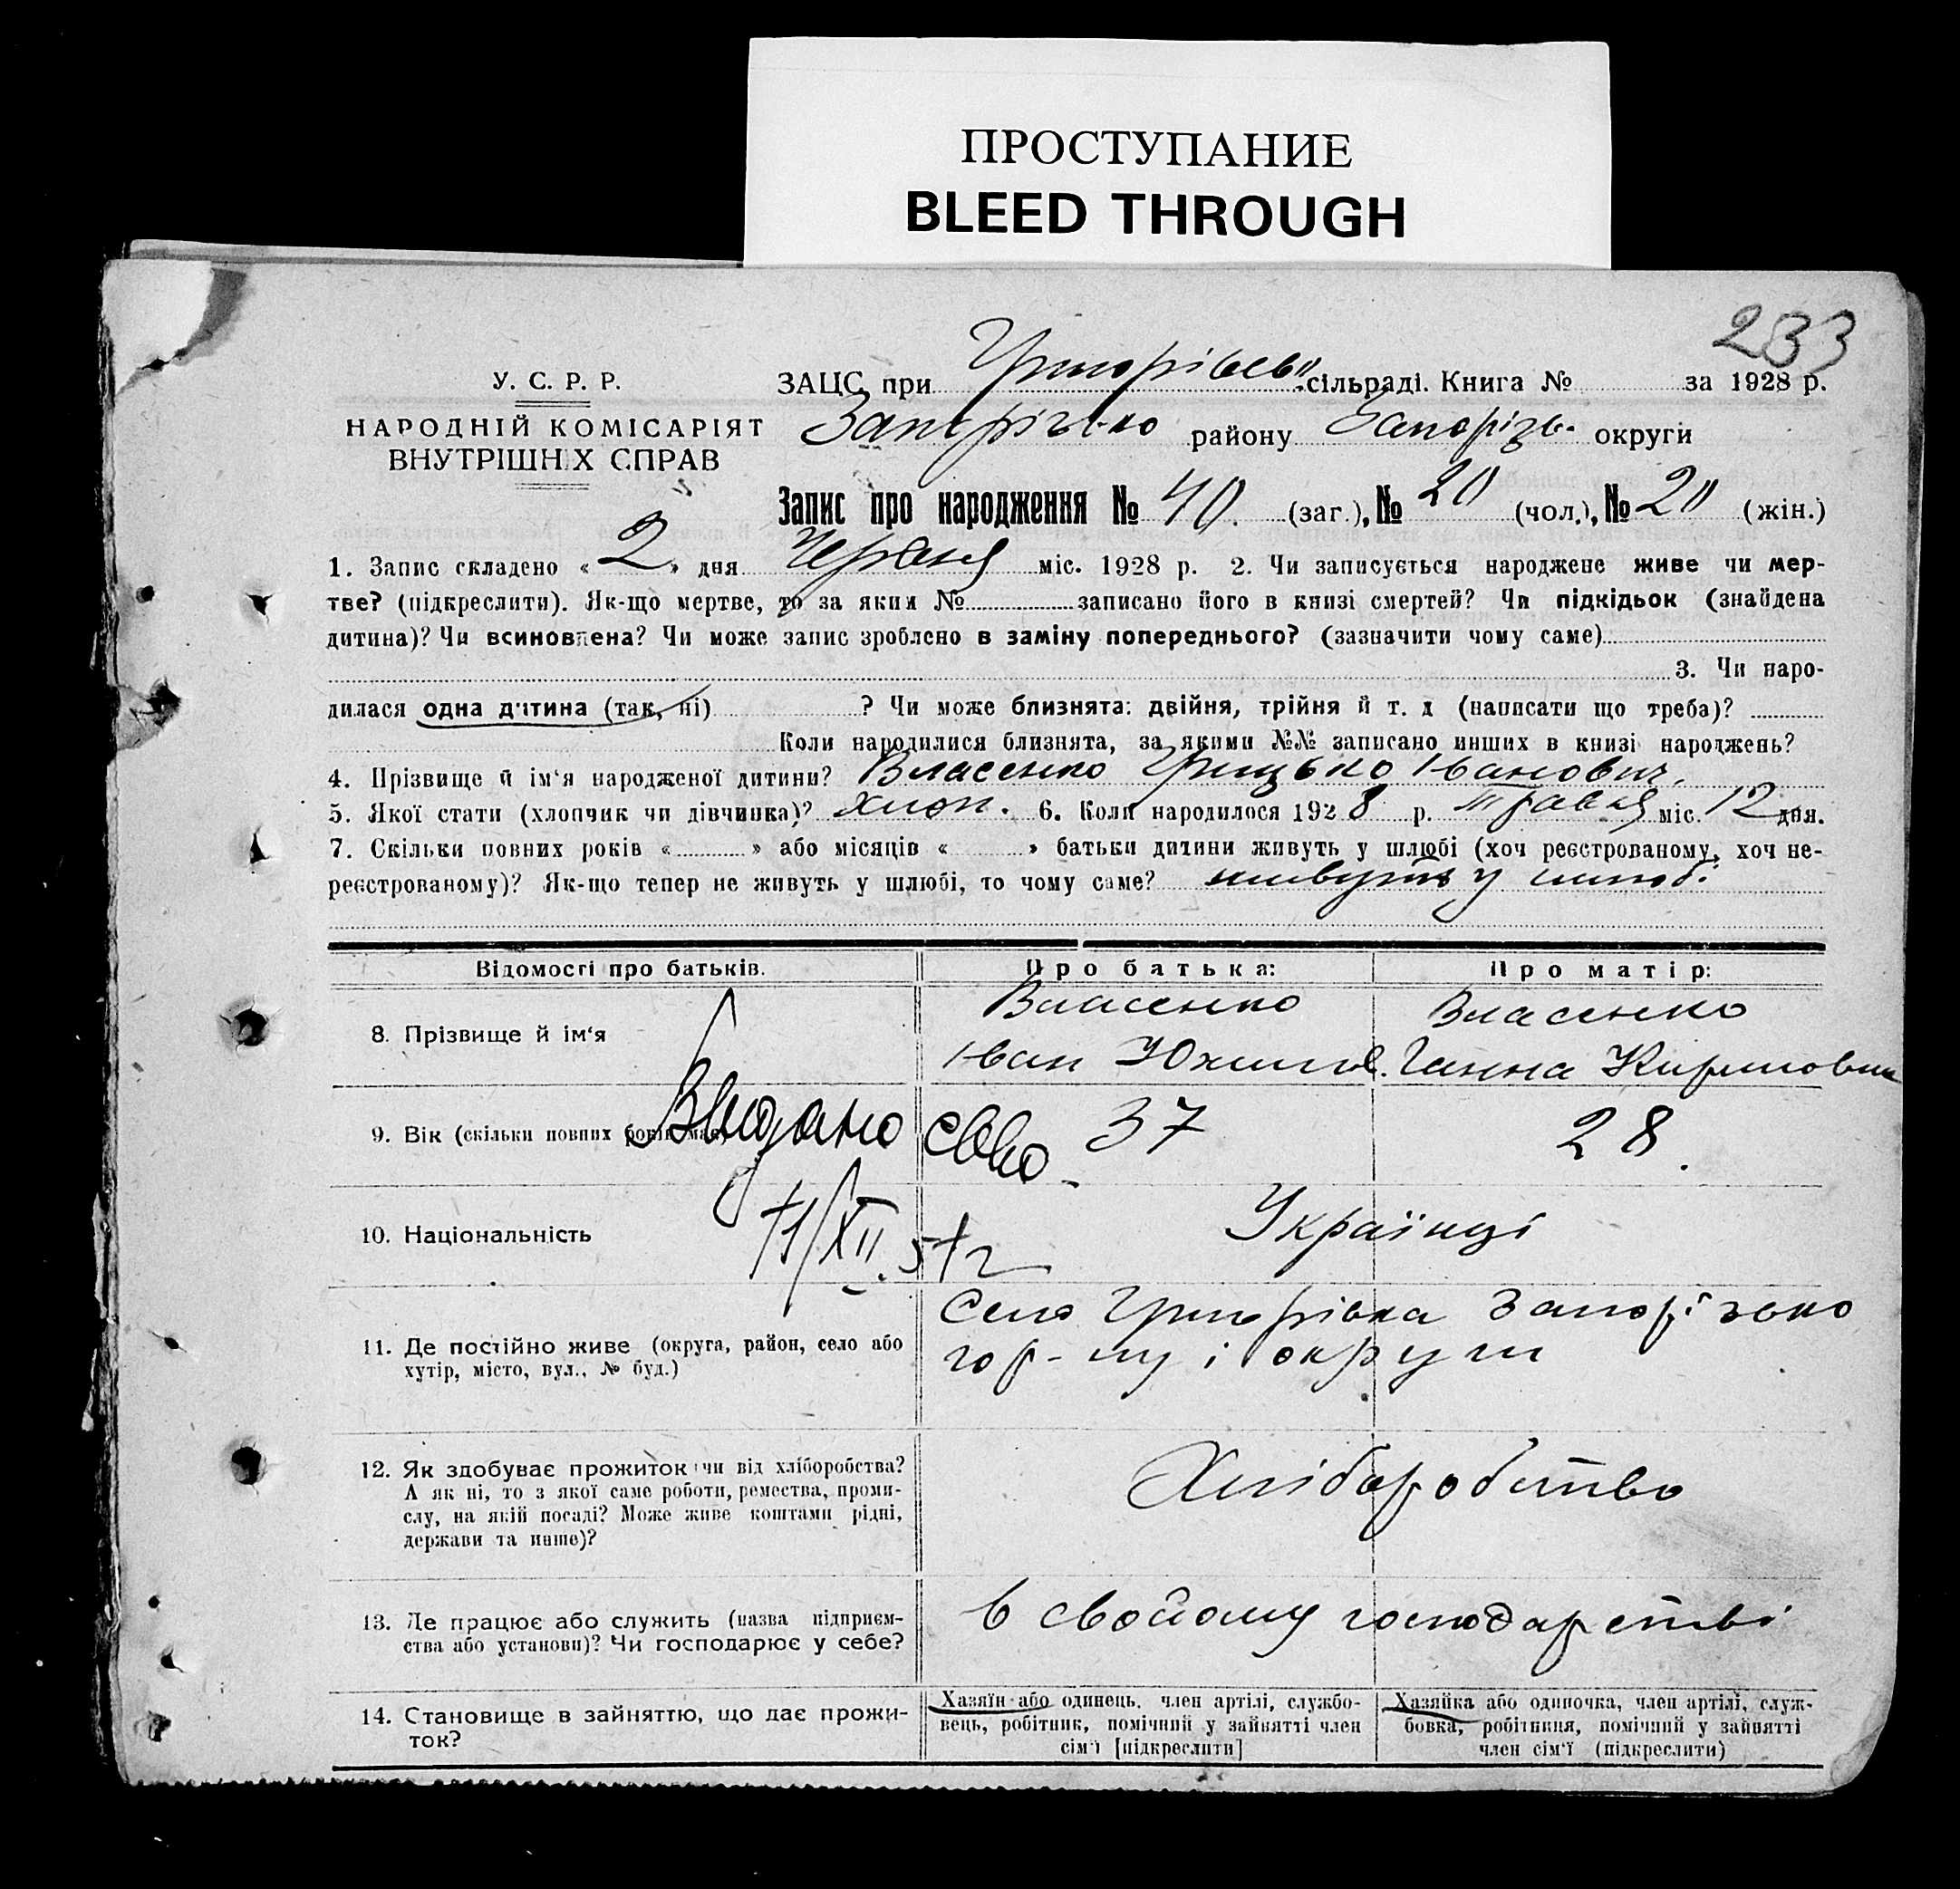 ПРОСТУПАНИЕ
BLEED THROUGH
233
У. С. Р. Р.
НАРОДНІЙ КОМІСАРІЯТ
ВНУТРІШНІХ СПРАВ
ЗАЦС при Григорівськ. сільраді. Книга № за 1928 р.
Запорізько району Запорізь. округи
Запис про народження № 40. (заг.), № 20 (чол.), № 20 (жін.)
1. Запис складено « 2 » дня Червня міс. 1928 р. 2. Чи записується народжене живе чи мер-
тве? (підкреслити). Як-що мертве, то за яким № записано його в книзі смертей? Чи підкідьок (знайдена
дитина)? Чи всиновлена? Чи може запис зроблено в заміну попереднього? (зазначити чому саме)
3. Чи наро-
дилася одна дитина (так, ні) ? Чи може близнята: двійня, трійня й т. д (написати що треба)?
Коли народилися близнята, за якими №№ записано инших в книзі народжень?
4. Прізвище й ім'я народженої дитини? Власенко Грицько Іванович.
5. Якої стати (хлопчик чи дівчинка)? хлоп. 6. Коли народилося 1928 р. травня міс. 12 дня.
7. Скільки повних років « » або місяців « » батьки дитини живуть у шлюбі (хоч реєстрованому, хоч не-
реєстрованому)? Як-що тепер не живуть у шлюбі, то чому саме? живуть у шлюбі
Відомості про батьків. Про батька: Про матір:
8. Прізвище й ім'я Власенко Іван Юхимов. Власенко Ганна Кириловна
9. Вік (скільки повних років має) 37 28.
Выдано св-во.
11/XII 51 г
10. Національність Українці
11. Де постійно живе (округа, район, село або
хутір, місто, вул., № буд.)
Село Григорівка Запорізько
го р-ну і округи
12. Як здобуває прожиток чи від хліборобства?
А як ні, то з якої саме роботи, ремества, проми-
слу, на якій посаді? Може живе коштами рідні,
держави та инше)?
Хліборобство
13. Де працює або служить (назва підприєм-
ства або установи)? Чи господарює у себе?
в свойому господарстві
14. Становище в зайняттю, що дає прожи-
ток?
Хазяїн або одинець, член артілі, службо-
вець, робітник, помічний у зайнятті член
сім'ї [підкреслити]
Хазяйка або одиночка, член артілі, служ-
бовка, робітниця, помічний у зайнятті
член сім'ї (підкреслити)